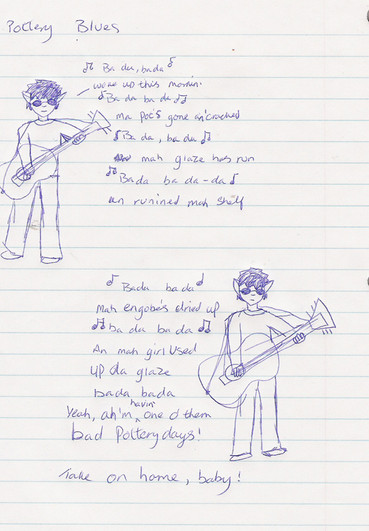 Pottery Blues
♫ Ba da, bada ♪
woke up this mornin.
♪ Ba da ba da ♫
ma pot's gone an' cracked
♪ Ba da, ba da ♫
mah glaze has run
♫ Bada ba da-da ♪
an runined mah shelf
♪ Bada ba da ♪
mah engobe's dried up
♫ ba da ba da ♫
An mah girl used
up da glaze
bada bada
Yeah, ah'm havin one o' them
bad Pottery days!
Take on home, baby!